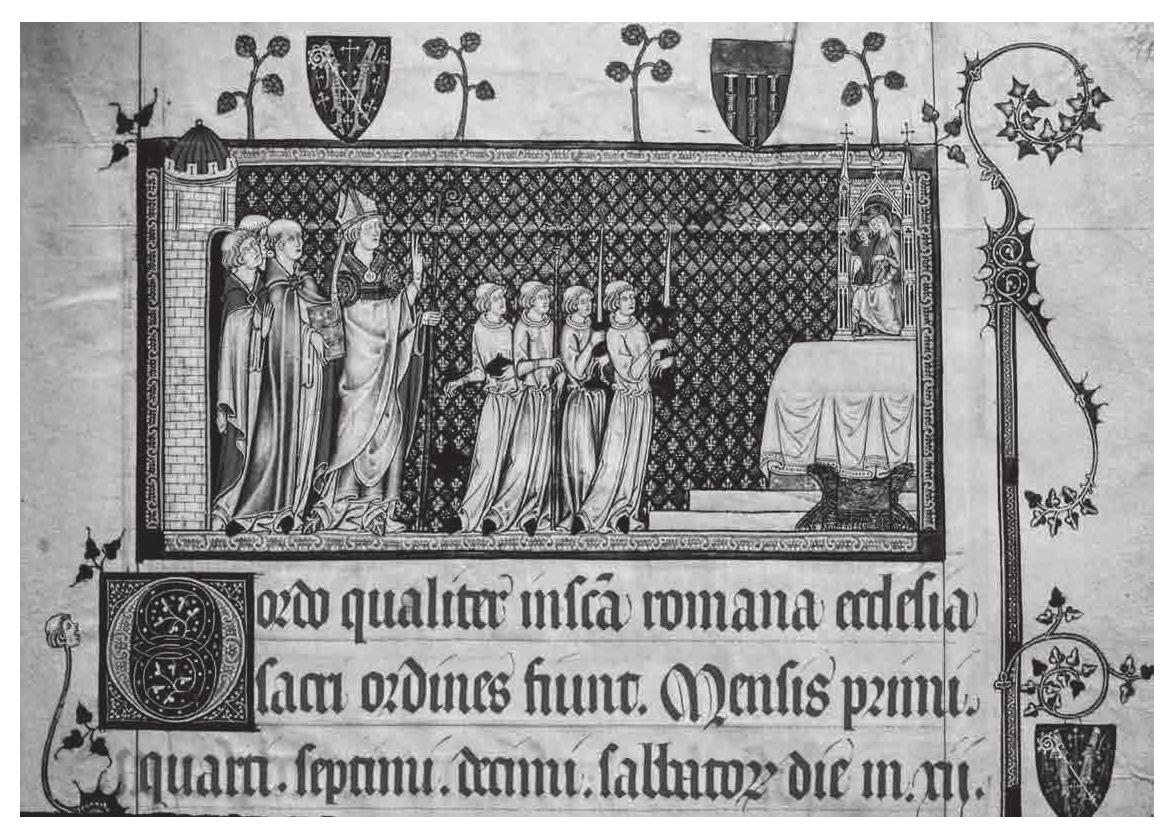 Oordo qualiter in scā romana ecclesia
sacri ordines fiunt. Mensis primi.
quarti. septimi. decimi. sabbatoꝝ die in. xii.